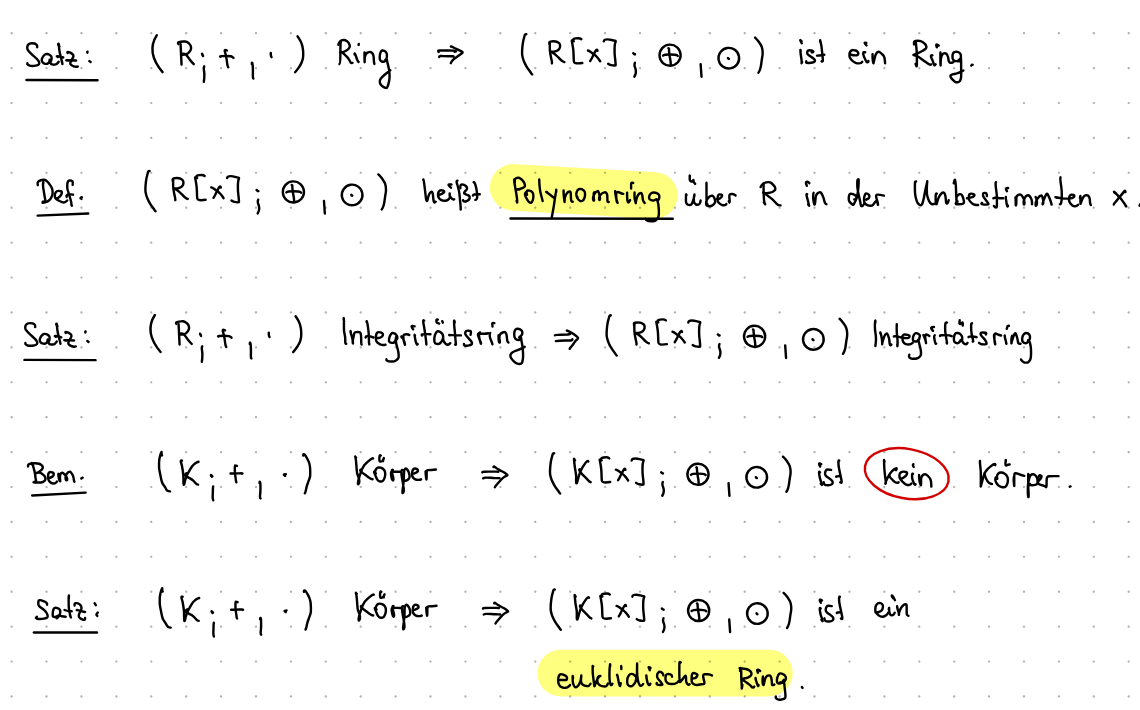 Satz: (R; +, ·) Ring ⇒ (R[x]; ⊕, ⊙) ist ein Ring.
Def. (R[x]; ⊕, ⊙) heißt Polynomring über R in der Unbestimmten x.
Satz: (R; +, ·) Integritätsring ⇒ (R[x]; ⊕, ⊙) Integritätsring
Bem. (K; +, ·) Körper ⇒ (K[x]; ⊕, ⊙) ist kein Körper.
Satz: (K; +, ·) Körper ⇒ (K[x]; ⊕, ⊙) ist ein
euklidischer Ring.